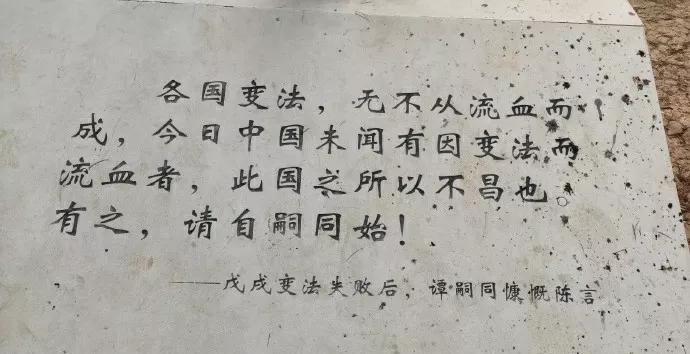 各国变法，无不从流血而
成，今日中国未闻有因变法而
流血者，此国之所以不昌也。
有之，请自嗣同始！
——戊戌变法失败后，谭嗣同慷慨陈言